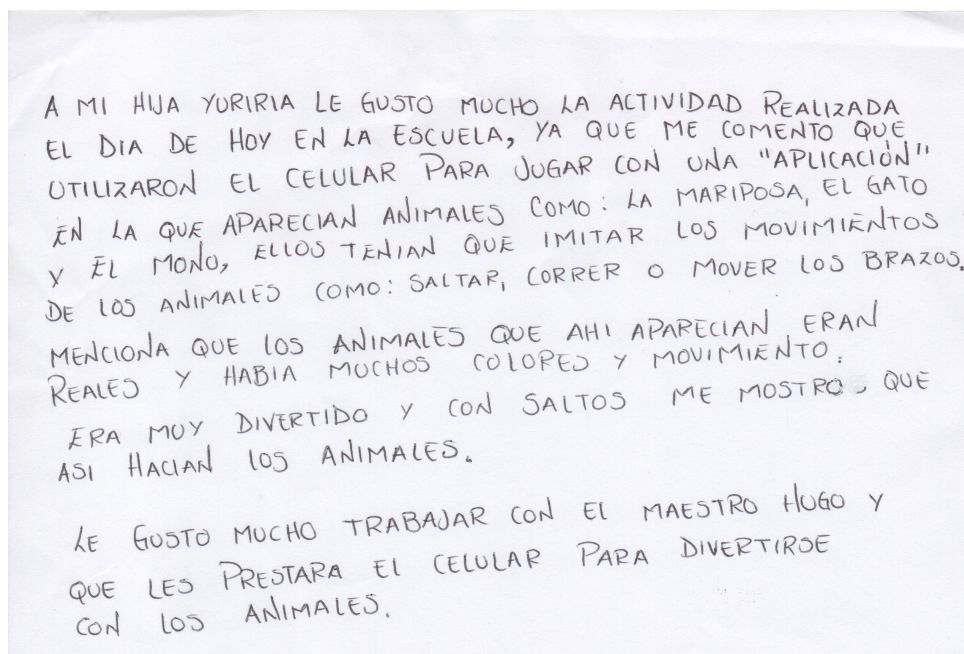 A MI HIJA YURIRIA LE GUSTO MUCHO LA ACTIVIDAD REALIZADA
EL DIA DE HOY EN LA ESCUELA, YA QUE ME COMENTO QUE
UTILIZARON EL CELULAR PARA JUGAR CON UNA "APLICACIÓN"
EN LA QUE APARECIAN ANIMALES COMO: LA MARIPOSA, EL GATO
Y EL MONO, ELLOS TENIAN QUE IMITAR LOS MOVIMIENTOS
DE LOS ANIMALES COMO: SALTAR, CORRER O MOVER LOS BRAZOS.
MENCIONA QUE LOS ANIMALES QUE AHI APARECIAN ERAN
REALES Y HABIA MUCHOS COLORES Y MOVIMIENTO.
ERA MUY DIVERTIDO Y CON SALTOS ME MOSTRO QUE
ASI HACIAN LOS ANIMALES.
LE GUSTO MUCHO TRABAJAR CON EL MAESTRO HUGO Y
QUE LES PRESTARA EL CELULAR PARA DIVERTIRSE
CON LOS ANIMALES.